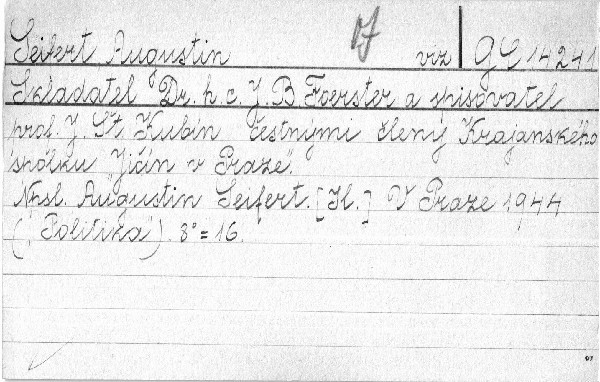 Seifert Augustin vrz GS 14241
Skladatel Dr. h. c. J. B Foerster a spisovatel
prof. J. Št Kubín čestnými členy Krajanského
spolku "Jičín v Praze".
Npsl. Augustin Seifert. [Il.] V Praze 1944
("Politika"). 8° = 16.